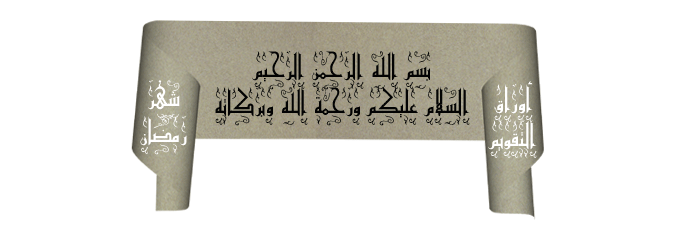 بسم الله الرحمن الرحيم
السلام عليكم ورحمة الله وبركاته
أوراق
التقويم
شهر
رمضان